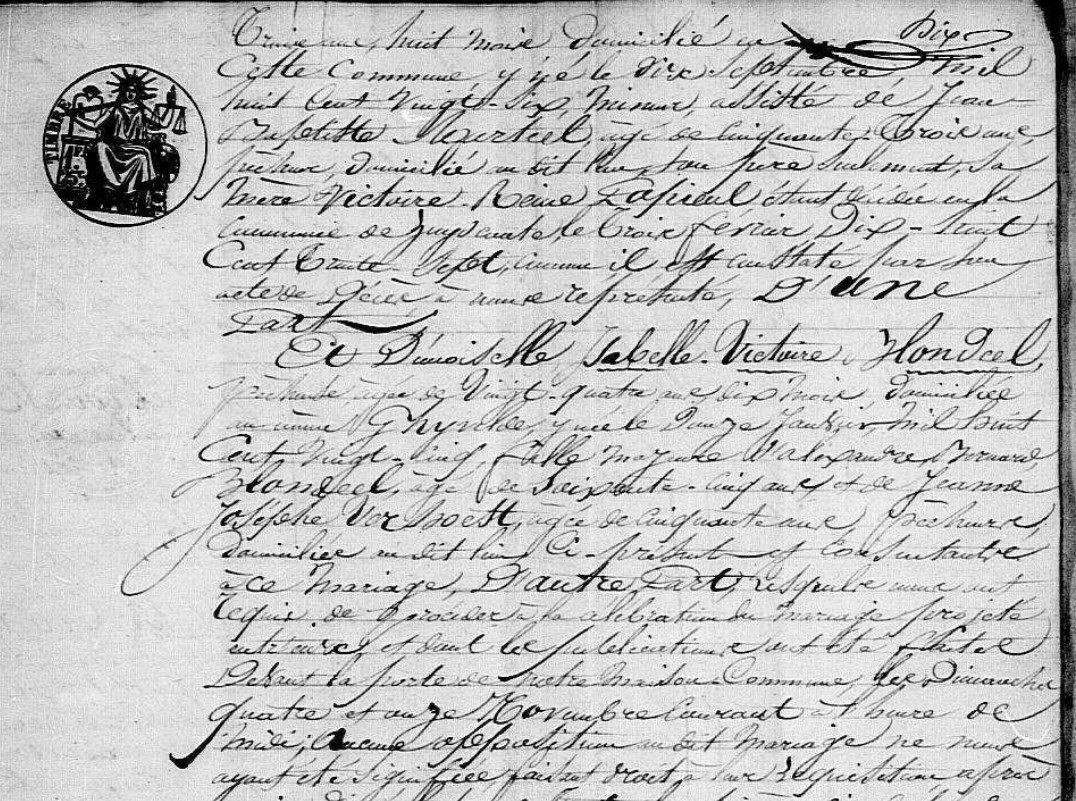 TIMBRE
Trois ans, huit mois domicilié en Dix
Cette Commune, y né le dix Septembre, mil
huit Cent Vingt-Six, mineur, assisté de Jean-
Baptiste âgé de Cinquante-Trois ans,
pêcheur, domicilié au dit lieu, son père seulement, sa
mère Victoire-Reine étant décédée en la
Commune de Zuydcoote, le Trois février Dix-huit
Cent Trente-Sept, comme il est constaté par son
acte de Décès à nous représenté, D'une
Part
Et Demoiselle, Isabelle-Victoire Blondeel,
pêcheuse, âgée de Vingt-quatre ans dix mois, domiciliée
au même Ghyvelde, y née le Douze Janvier Mil huit
Cent Vingt-Cinq, fille majeure d'alexandre, Bernard,
Blondeel, âgé de Soixante-Cinq ans, et de Jeanne
Joséphe agée de Cinquante ans, pêcheurs,
domiciliés au dit lieu Ci-présents et Consentants
à ce Mariage, D'autre Part, lesquels nous ont
requis de Procéder à la célébration du mariage projeté
entr'eux, et dont les publications ont été faites
Devant la porte de notre Maison-Commune, les Dimanches
quatre et onze Novembre Courant à l'heure de
midi; Aucune opposition au dit Mariage ne nous
ayant été Signifiée, faisant droit à leur requisition, après